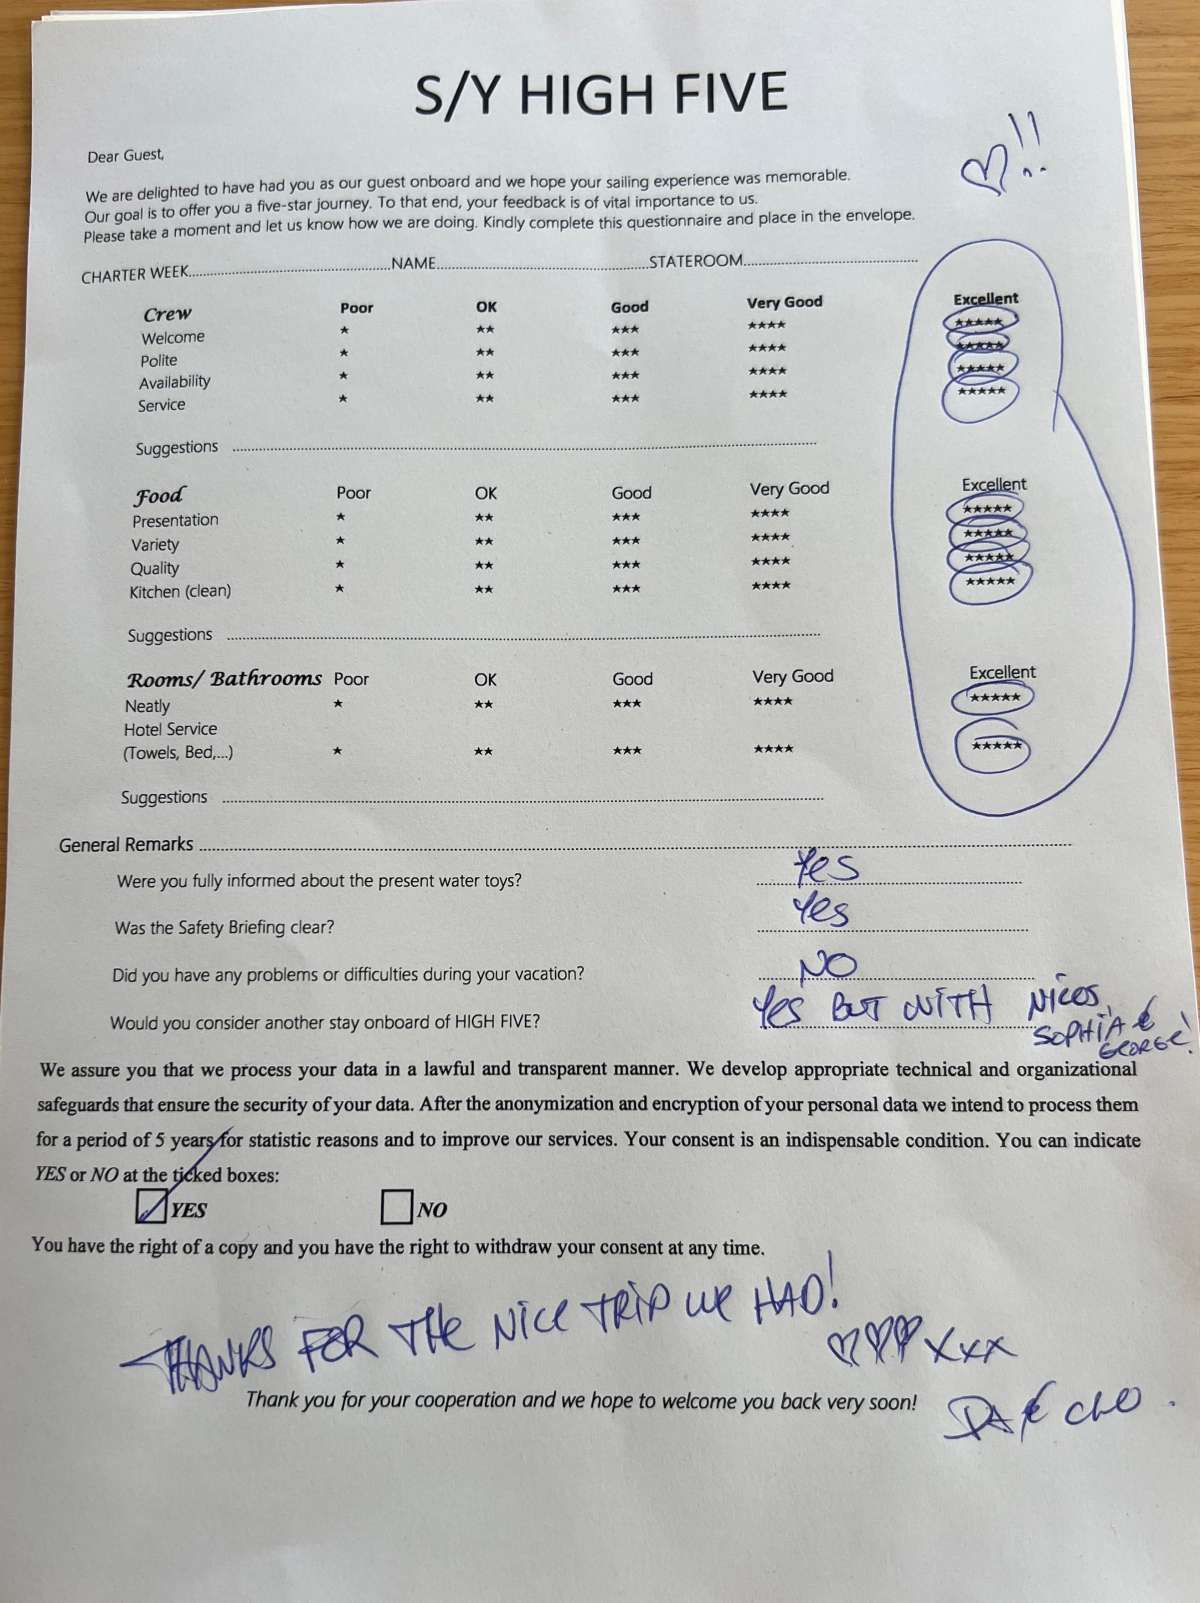 S/Y HIGH FIVE
!!
Dear Guest,
We are delighted to have had you as our guest onboard and we hope your sailing experience was memorable.
Our goal is to offer you a five-star journey. To that end, your feedback is of vital importance to us.
Please take a moment and let us know how we are doing. Kindly complete this questionnaire and place in the envelope.
CHARTER WEEK..........NAME..........STATEROOM..........
Crew Poor OK Good Very Good Excellent
Welcome ★ ★★ ★★★ ★★★★ ★★★★★
Polite ★ ★★ ★★★ ★★★★ ★★★★★
Availability ★ ★★ ★★★ ★★★★ ★★★★★
Service ★ ★★ ★★★ ★★★★ ★★★★★
Suggestions ..........
Food Poor OK Good Very Good Excellent
Presentation ★ ★★ ★★★ ★★★★ ★★★★★
Variety ★ ★★ ★★★ ★★★★ ★★★★★
Quality ★ ★★ ★★★ ★★★★ ★★★★★
Kitchen (clean) ★ ★★ ★★★ ★★★★ ★★★★★
Suggestions ..........
Rooms/ Bathrooms Poor OK Good Very Good Excellent
Neatly ★ ★★ ★★★ ★★★★ ★★★★★
Hotel Service
(Towels, Bed,...) ★ ★★ ★★★ ★★★★ ★★★★★
Suggestions ..........
General Remarks ..........
Were you fully informed about the present water toys? Yes
Was the Safety Briefing clear? Yes
Did you have any problems or difficulties during your vacation? NO
Would you consider another stay onboard of HIGH FIVE? Yes BUT WITH NICOS,
SOPHIA &
GEORGE!
We assure you that we process your data in a lawful and transparent manner. We develop appropriate technical and organizational
safeguards that ensure the security of your data. After the anonymization and encryption of your personal data we intend to process them
for a period of 5 years for statistic reasons and to improve our services. Your consent is an indispensable condition. You can indicate
YES or NO at the ticked boxes:
YES NO
You have the right of a copy and you have the right to withdraw your consent at any time.
THANKS FOR THE NICE TRIP WE HAD!
♡♡♡ xxx
Thank you for your cooperation and we hope to welcome you back very soon!
& CLO